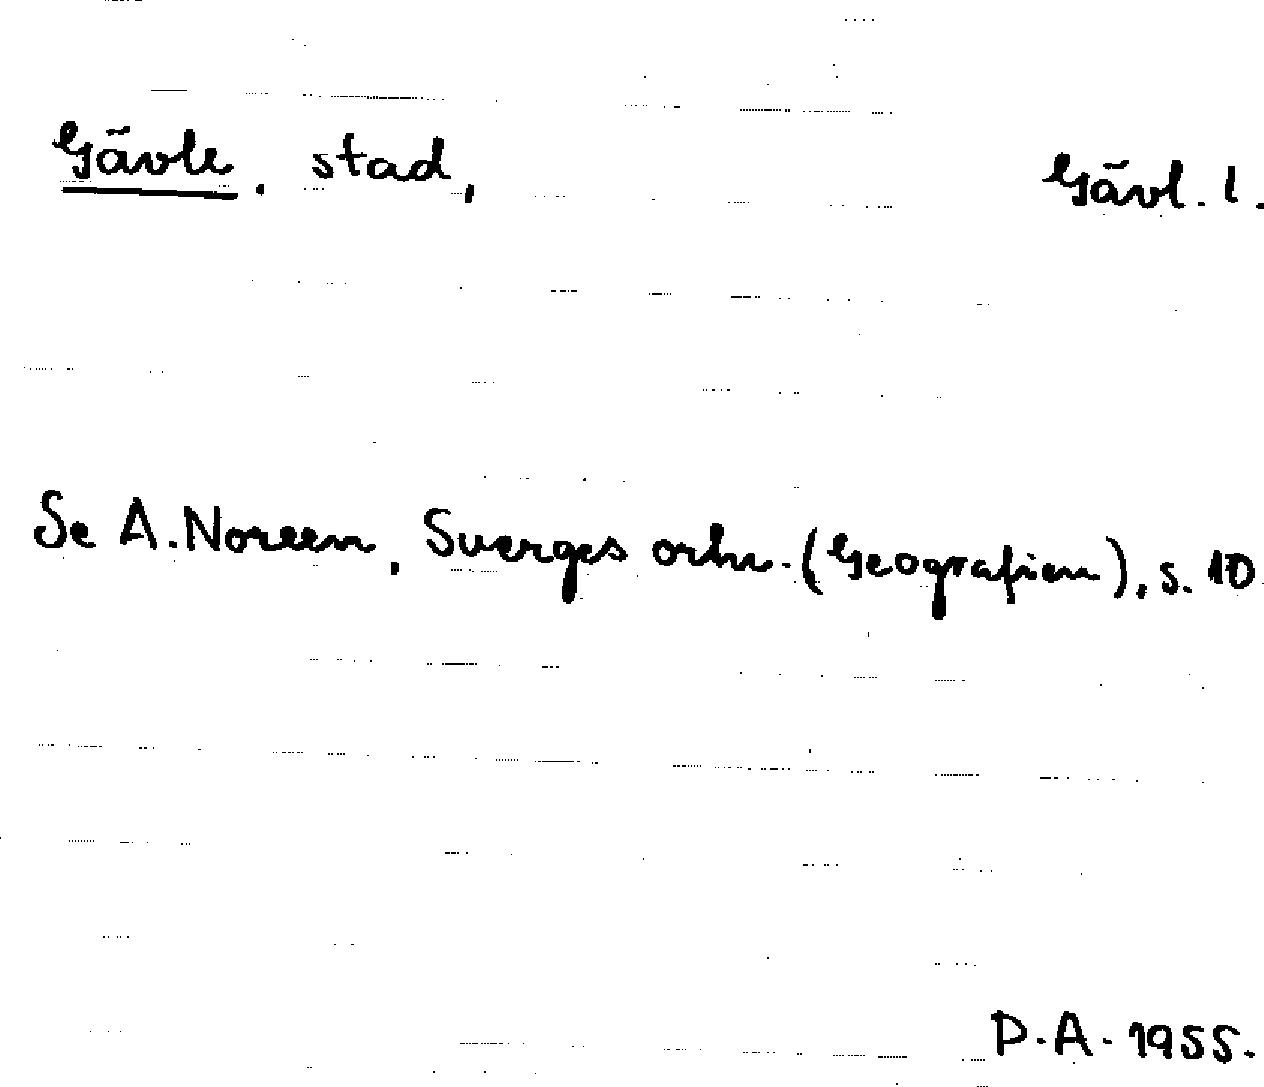 Gävle, stad, Gävl. l.
Se A. Noreen, Sverges ortn. (Geografien), s. 10
D.A. 1955.